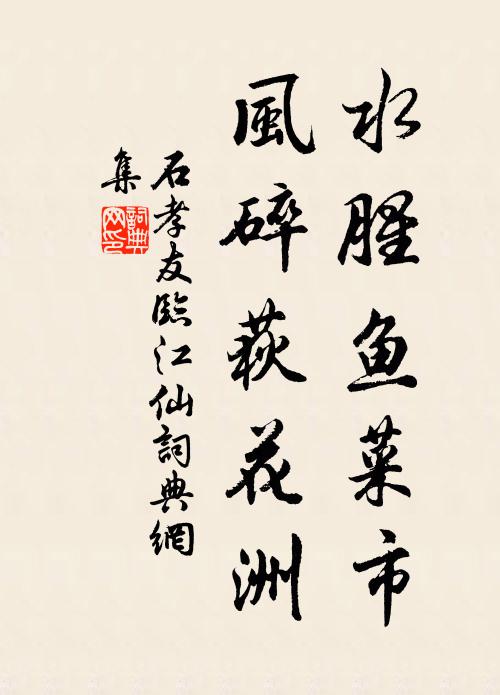 水腥鱼菜市
風碎荻花洲
石孝友臨江仙詞典網
集
詞典网印